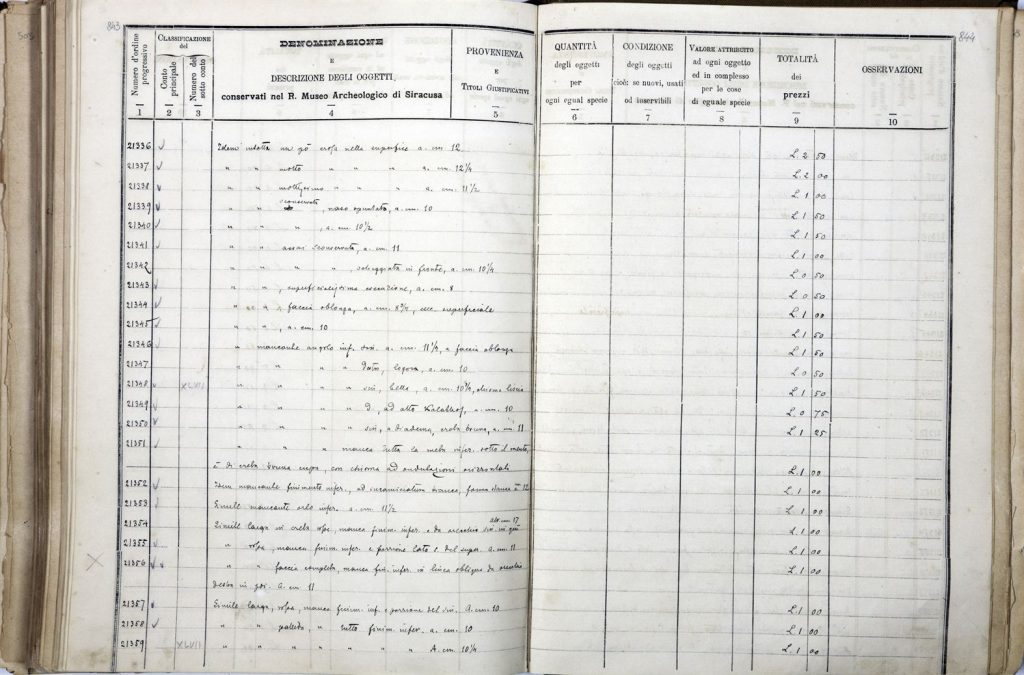 843
844
Numero d'ordine progressivo
CLASSIFICAZIONE del
Conto principale
Numero del sotto conto
DENOMINAZIONE
E
DESCRIZIONE DEGLI OGGETTI,
conservati nel R. Museo Archeologico di Siracusa
PROVENIENZA
E
TITOLI GIUSTIFICATIVI
QUANTITÀ
degli oggetti
per
ogni egual specie
CONDIZIONE
degli oggetti
cioè: se nuovi, usati
od inservibili
VALORE ATTRIBUITO
ad ogni oggetto
ed in complesso
per le cose
di eguale specie
TOTALITÀ
dei
prezzi
OSSERVAZIONI
1 2 3 4 5 6 7 8 9 10
21336 Idem intatta un pò erosa nella superficie a. cm. 12 L. 2 50
21337 " " molto " " " a. cm. 12 1/4 L. 2 00
21338 " " moltissimo " " " " a. cm. 11 1/2 L. 1 00
21339 " " sconservata, naso spuntato, a. cm. 10 L. 1 50
21340 " " " , a. cm. 10 1/2 L. 1 50
21341 " " assai sconservata, a. cm. 11 L. 1 00
21342 " " " " , in fronte, a. cm. 10 1/4 L. 0 50
21343 " " , superficialissima esecuzione, a. cm. 8 L. 0 50
21344 " " faccia oblonga, a. cm. 8 3/4, superficiale L. 1 00
21345 " " , a. cm. 10 L. 1 50
21346 " mancante angolo inf. sin. a. cm. 11 1/2, a faccia oblonga L. 1 50
21347 " " " " a. cm. 10 L. 0 50
21348 XLVII " " " " sin, bella, a. cm. 10 3/4, chioma liscia L. 1 50
21349 " " " " D., ad alto Kalathos, a. cm. 10 L. 0 75
21350 " " " " sin, a diadema, creta bruna, a. cm. 11 L. 1 25
21351 " " " manca tutta la metà infer. sotto il mento,
è di creta bruna cupa, con chioma ad ondulazioni orizzontali L. 1 00
21352 Idem mancante finimento infer., ad bianca, forma a 12 L. 1 00
21353 Simile mancante orlo infer. a. cm. 11 1/2 L. 1 00
21354 Simile larga in creta manca finim. infer. e da orecchio sin. in giù alt. cm. 17 L. 1 00
21355 " manca finim. infer. e porzione lato s. del super. a. cm. 11 L. 1 00
21356 " " faccia completa, manca fin. infer. in linea obliqua da orecchio
destro in giù. a. cm. 11 L. 1 00
21357 Simile larga, manca finim. inf. e porzione del sin. a. cm. 10 L. 1 00
21358 " " pallida, " tutto finim. infer. a. cm. 10 L. 1 00
21359 XLVII " " " " " " " a. cm. 10 1/4 L. 1 00